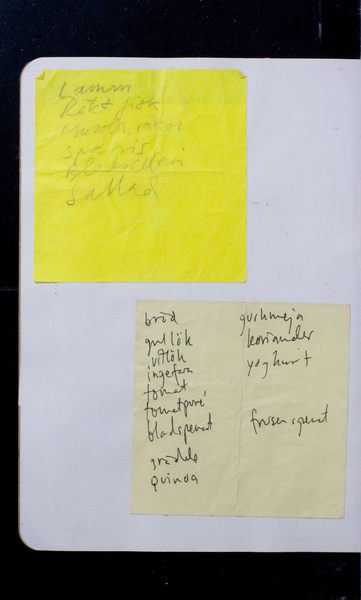 Lamm
Rökt fisk
Musslor, räkor
sparris
Blekselleri
Sallad
bröd
gullök
vitlök
ingefära
tomat
tomatpuré
bladspenat
grädde
quinoa
gurkmeja
koriander
yoghurt
frusen spenat